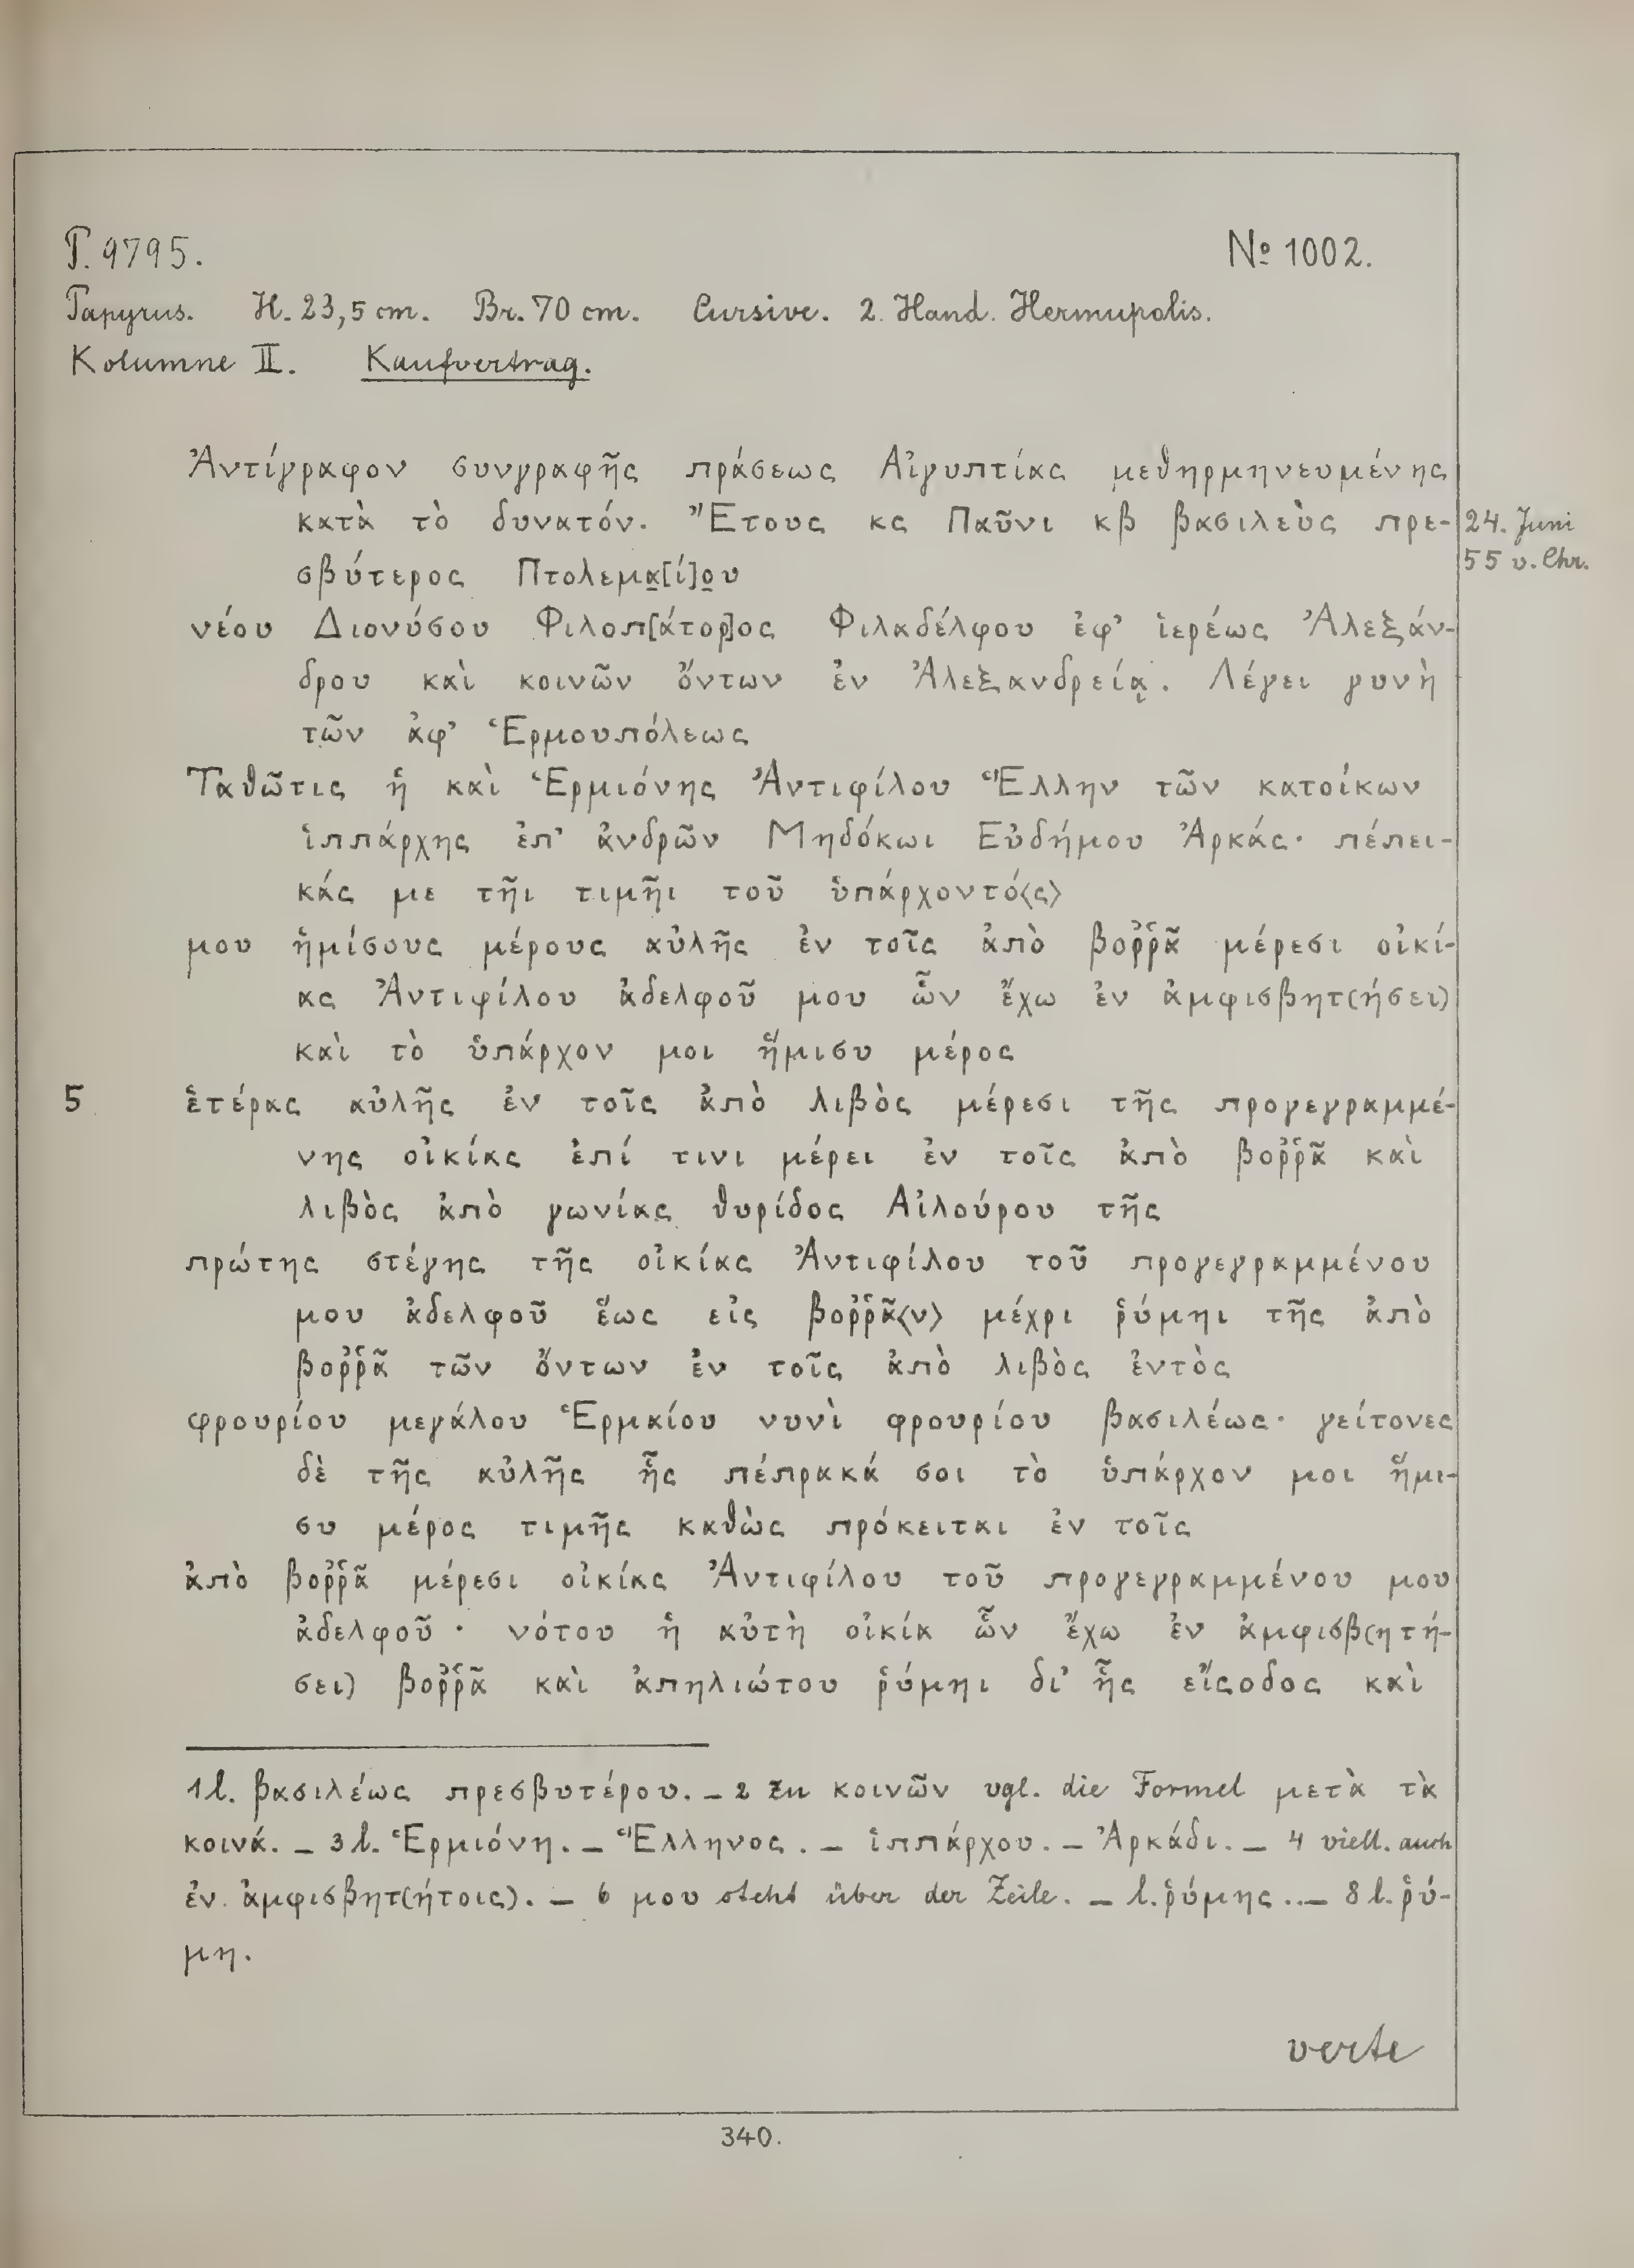 P. 9795. № 1002.
Papyrus. H. 23,5 cm. Br. 70 cm. Cursive. 2. Hand. Hermupolis.
Kolumne II. Kaufvertrag.
Ἀντίγραφον συνγραφῆς πράσεως Αἰγυπτίας μεθηρμηνευμένης
κατὰ τὸ δυνατόν. Ἔτους κς Παῦνι κβ βασιλεὺς πρε-
24. Juni
55 v. Chr.
σβύτερος Πτολεμα̣[ί]ο̣υ
νέου Διονύσου Φιλοπ[άτορ]ος Φιλαδέλφου ἐφ' ἱερέως Ἀλεξάν-
δρου καὶ κοινῶν ὄντων ἐν Ἀλεξανδρείᾳ. Λέγει γυνὴ
τῶν ἀφ' Ἑρμουπόλεως
Ταθῶτις ἡ καὶ Ἑρμιόνης Ἀντιφίλου Ἕλλην τῶν κατοίκων
ἱππάρχης ἐπ' ἀνδρῶν Μηδόκωι Εὐδήμου Ἀρκάς· πέπει-
κάς με τῆι τιμῆι τοῦ ὑπάρχοντό⟨ς⟩
μου ἡμίσους μέρους αὐλῆς ἐν τοῖς ἀπὸ βοῤῥᾶ μέρεσι οἰκί-
ας Ἀντιφίλου ἀδελφοῦ μου ὧν ἔχω ἐν ἀμφισβητ(ήσει)
καὶ τὸ ὑπάρχον μοι ἥμισυ μέρος
5 ἑτέρας αὐλῆς ἐν τοῖς ἀπὸ λιβὸς μέρεσι τῆς προγεγραμμέ-
νης οἰκίας ἐπί τινι μέρει ἐν τοῖς ἀπὸ βοῤῥᾶ καὶ
λιβὸς ἀπὸ γωνίας θυρίδος Αἰλούρου τῆς
πρώτης στέγης τῆς οἰκίας Ἀντιφίλου τοῦ προγεγραμμένου
μου ἀδελφοῦ ἕως εἰς βοῤῥᾶ⟨ν⟩ μέχρι ῥύμηι τῆς ἀπὸ
βοῤῥᾶ τῶν ὄντων ἐν τοῖς ἀπὸ λιβὸς ἐντὸς
φρουρίου μεγάλου Ἑρμαίου νυνὶ φρουρίου βασιλέως· γείτονες
δὲ τῆς αὐλῆς ἧς πέπρακά σοι τὸ ὑπάρχον μοι ἥμι-
συ μέρος τιμῆς καθὼς πρόκειται ἐν τοῖς
ἀπὸ βοῤῥᾶ μέρεσι οἰκίας Ἀντιφίλου τοῦ προγεγραμμένου μου
ἀδελφοῦ· νότου ἡ αὐτὴ οἰκία ὧν ἔχω ἐν ἀμφισβ(ητή-
σει) βοῤῥᾶ καὶ ἀπηλιώτου ῥύμηι δι' ἧς εἴςοδος καὶ
1 l. βασιλέως πρεσβυτέρου. – 2 zu κοινῶν vgl. die Formel μετὰ τὰ
κοινά. – 3 l. Ἑρμιόνη. – Ἕλληνος. – ἱππάρχου. – Ἀρκάδι. – 4 viell. auch
ἐν ἀμφισβητ(ήτοις). – 6 μου steht über der Zeile. – l. ῥύμης. – 8 l. ῥύ-
μη.
verte
340.